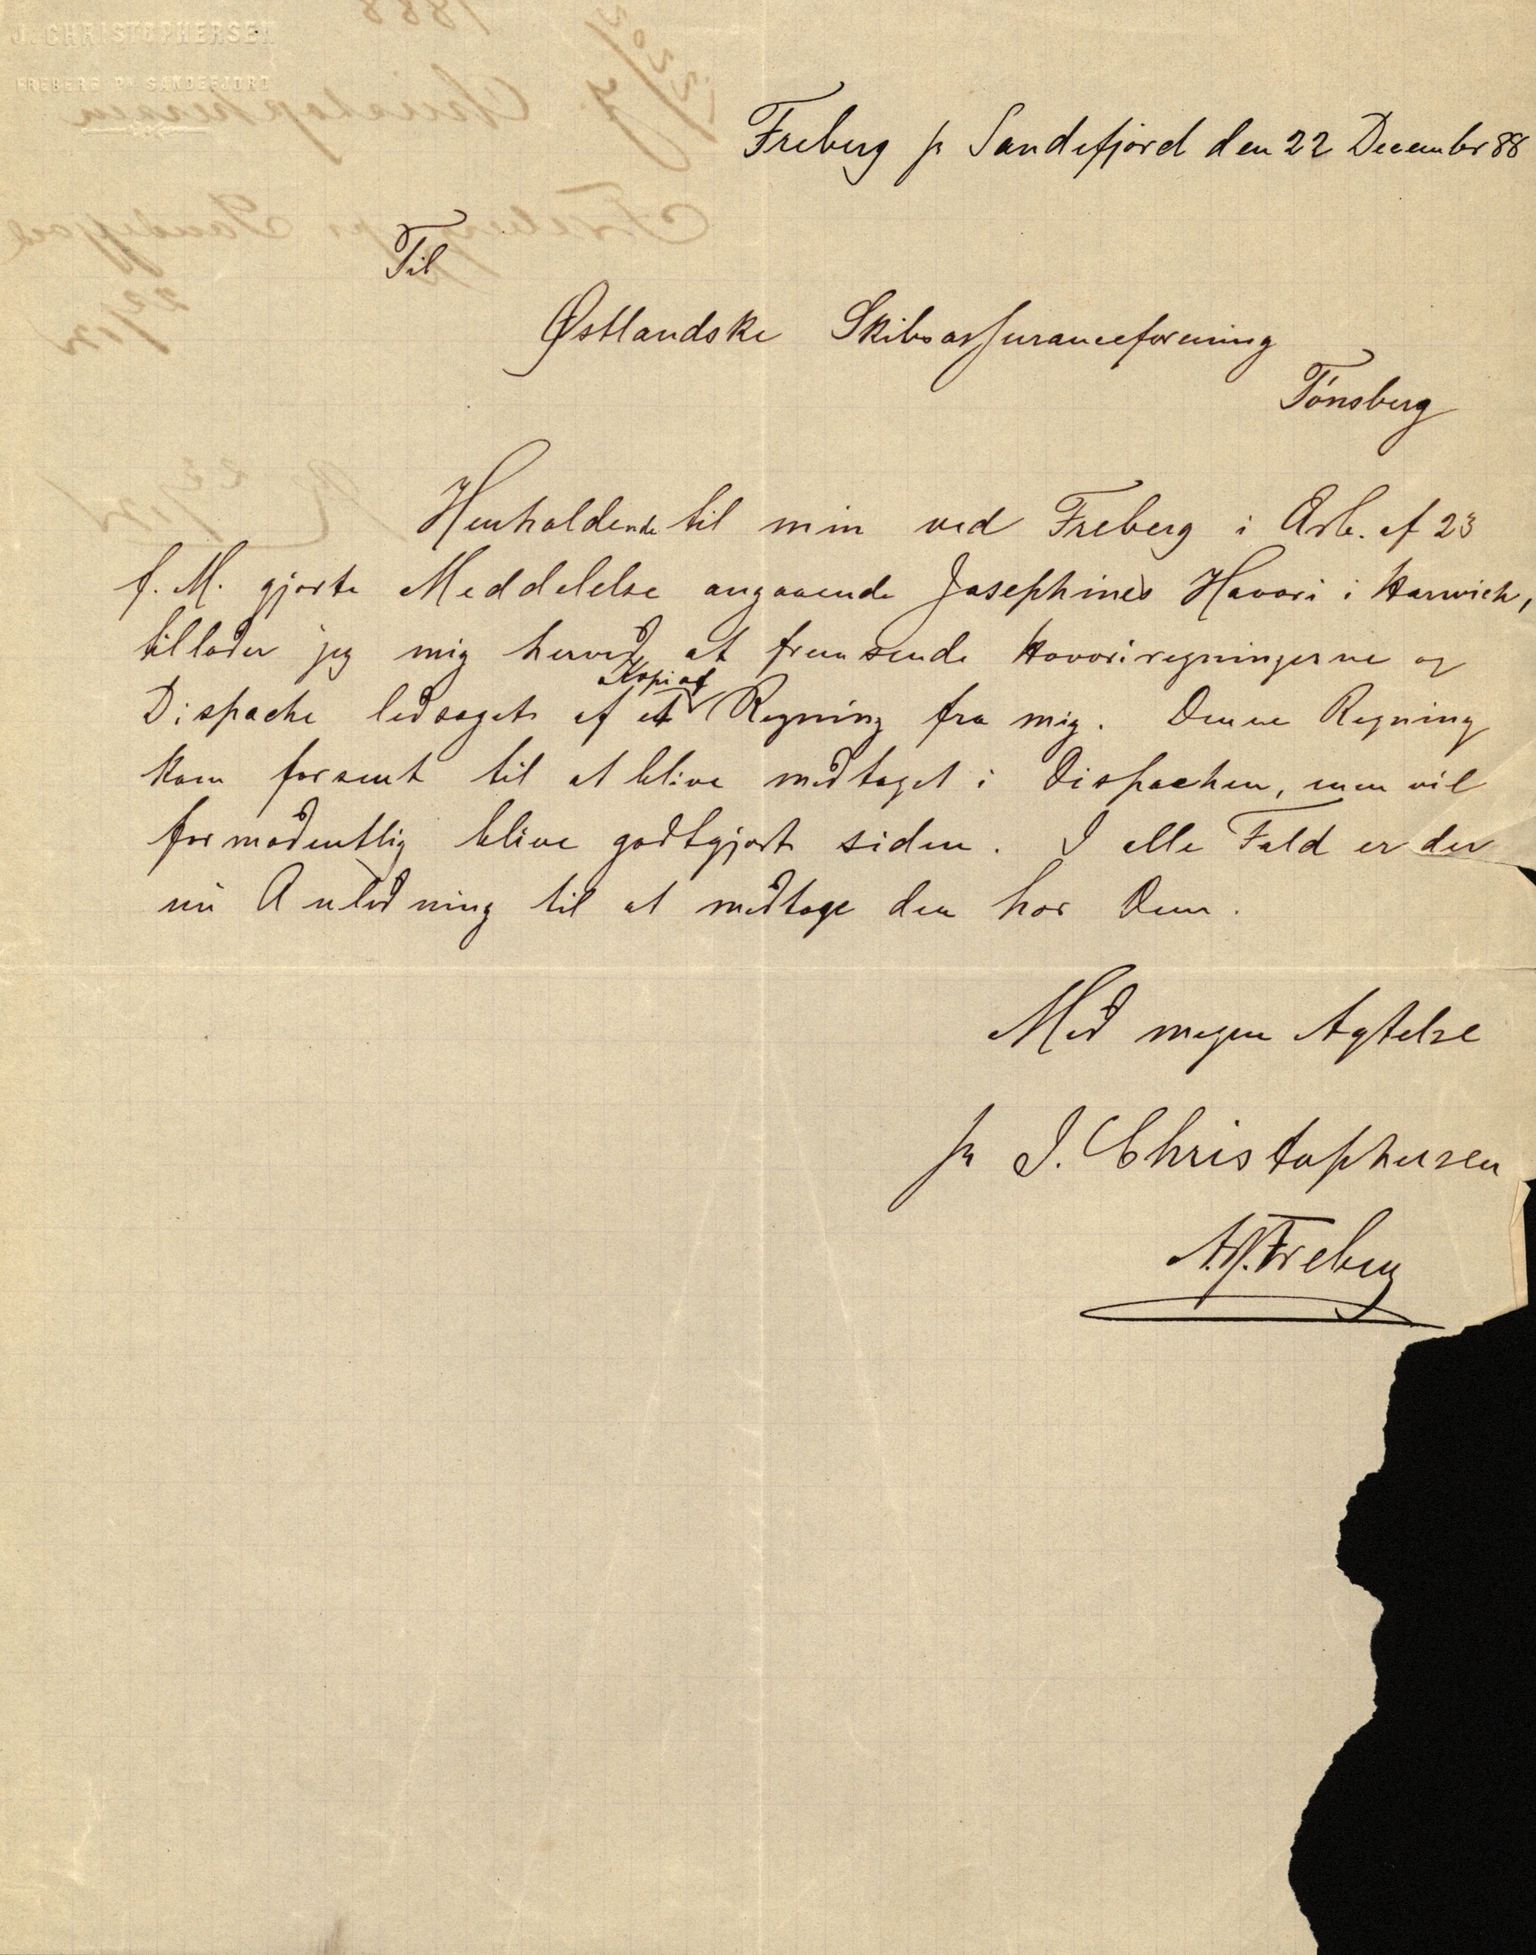 J. CHRISTOPHERSEN
FREBERG PR SANDEFJORD
Freberg pr Sandefjord den 22 December 88
Til
Østlandske Skibsassuranceforening
Tönsberg
Henholdende til min ved Freberg i Arb. af 23
f. M. gjorte Meddelelse angaaende Josephines Havari i Harwich,
tillader jeg mig herved at fremsende Havariregningerne og
Kopi af
Dispache ledsaget af et Regning fra mig. Denne Regning
kom forsent til at blive medtaget i Dispachen, men vil
formodentlig blive godtgjort siden. I alle Fald er der
nu Anledning til at medtage den hos Dem.
Med megen Agtelse
pr J. Christophersen
Freberg